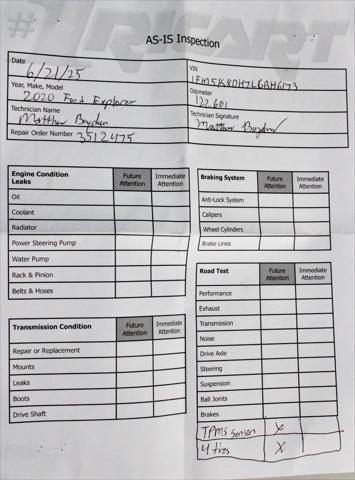 #1 TRICART
AS-IS Inspection
Date 6/21/25
VIN 1FM5K8DH7LGBH6173
Year, Make, Model 2020 Ford Explorer
Odometer 122,601
Technician Name Matthew Boyden
Technician Signature Matthew Boyden
Repair Order Number 3512475
Engine Condition Leaks Future Attention Immediate Attention
Oil
Coolant
Radiator
Power Steering Pump
Water Pump
Rack & Pinion
Belts & Hoses
Transmission Condition Future Attention Immediate Attention
Repair or Replacement
Mounts
Leaks
Boots
Drive Shaft
Braking System Future Attention Immediate Attention
Anti-Lock System
Calipers
Wheel Cylinders
Brake Lines
Road Test Future Attention Immediate Attention
Performance
Exhaust
Transmission
Noise
Drive Axle
Steering
Suspension
Ball Joints
Brakes
TPMS sensors X
4 tires X